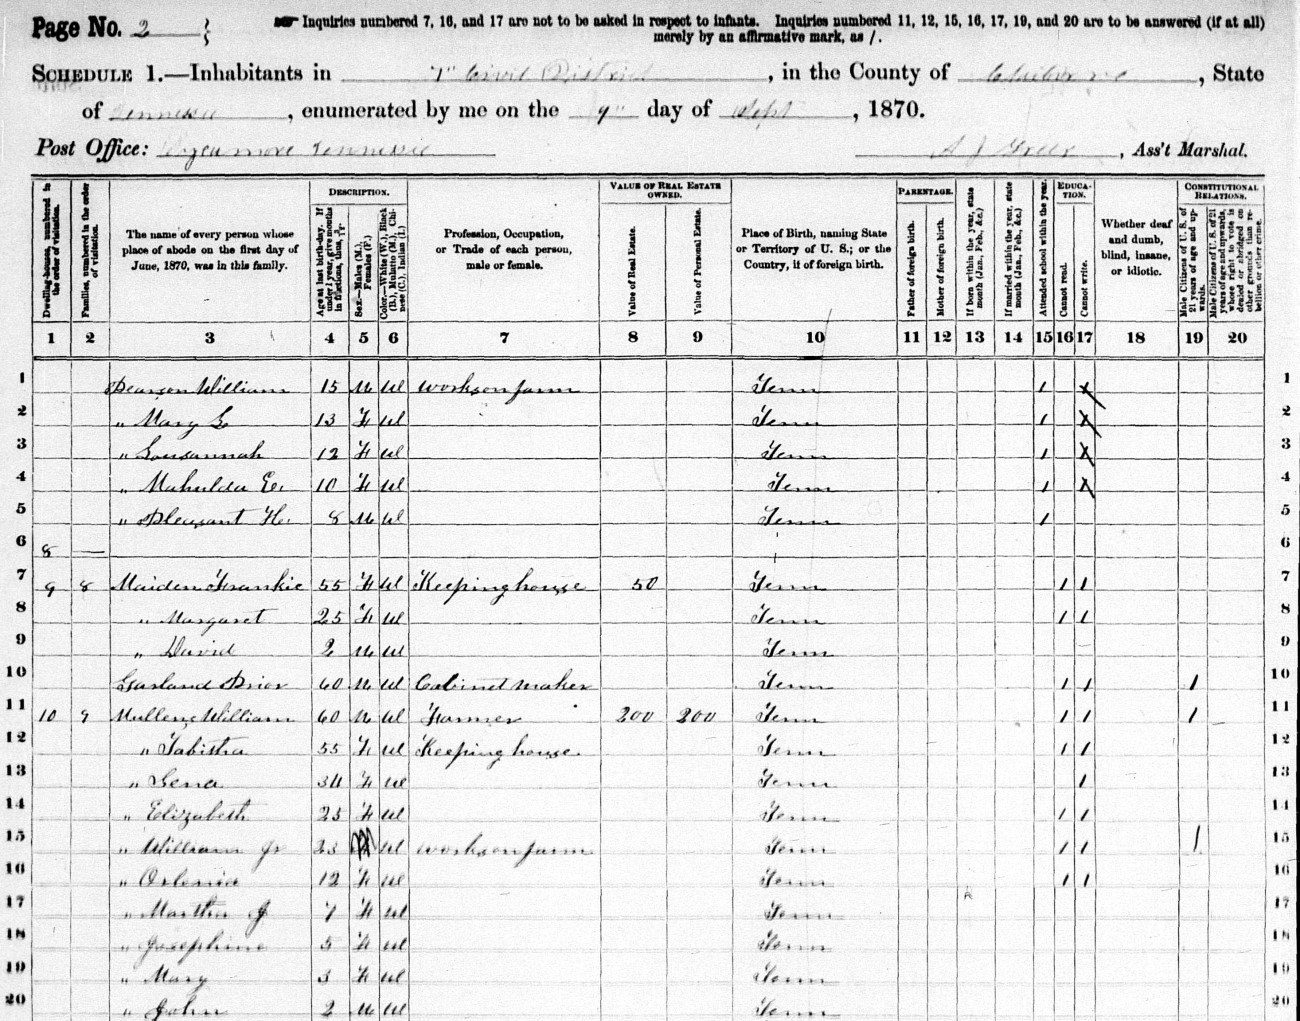 Page No. 2
Inquiries numbered 7, 16, and 17 are not to be asked in respect to infants. Inquiries numbered 11, 12, 15, 16, 17, 19, and 20 are to be answered (if at all)
merely by an affirmative mark, as /.
SCHEDULE 1.—Inhabitants in Civil District, in the County of Claiborne, State
of Tennessee, enumerated by me on the 9" day of Sept, 1870.
Post Office: Sycamore Tennessee A J Greer, Ass't Marshal.
DESCRIPTION. VALUE OF REAL ESTATE OWNED. PARENTAGE. EDUCATION. CONSTITUTIONAL RELATIONS.
Dwelling-houses, numbered in the order of visitation.
Families, numbered in the order of visitation.
The name of every person whose place of abode on the first day of June, 1870, was in this family.
Age at last birth-day. If under 1 year, give months in fractions, thus, 3/12
Sex.—Males (M.), Females (F.)
Color.—White (W.), Black (B.), Mulatto (M.), Chinese (C.), Indian (I.)
Profession, Occupation, or Trade of each person, male or female.
Value of Real Estate.
Value of Personal Estate.
Place of Birth, naming State or Territory of U. S.; or the Country, if of foreign birth.
Father of foreign birth.
Mother of foreign birth.
If born within the year, state month (Jan., Feb., &c.)
If married within the year, state month (Jan., Feb., &c.)
Attended school within the year.
Cannot read.
Cannot write.
Whether deaf and dumb, blind, insane, or idiotic.
Male Citizens of U. S. of 21 years of age and upwards.
Male Citizens of U. S. of 21 years of age and upwards, whose right to vote is denied or abridged on other grounds than rebellion or other crime.
1 2 3 4 5 6 7 8 9 10 11 12 13 14 15 16 17 18 19 20
1 Pearson William 15 M W works on farm Tenn 1 1
2 " Mary L 13 F W Tenn 1 1 2
3 " Lousannah 12 F W Tenn 1 3
4 " Mahulda E. 10 F W Tenn 1 4
5 " Pleasant H. 8 M W Tenn 1 5
6 8 — 6
7 9 8 Maiden Frankie 55 F W Keeping house 50 Tenn 1 1 7
8 " Margaret 25 F W Tenn 1 1 8
9 " David 2 M W Tenn 9
10 Garland Prior 60 M W Cabinet maker Tenn 1 1 1 10
11 10 9 Mullens William 60 M W Farmer 200 200 Tenn 1 1 1 11
12 " Tabitha 55 F W Keeping house Tenn 1 1 12
13 " Lena 34 F W Tenn 1 13
14 " Elizabeth 25 F W Tenn 1 1 14
15 " William Jr 23 W works on farm Tenn 1 1 1 15
16 " Orlenia 12 F W Tenn 1 1 16
17 " Martha J 7 F W Tenn 17
18 " Josephine 5 F W Tenn 18
19 " Mary 3 F W Tenn 19
20 " John 2 M W Tenn 20